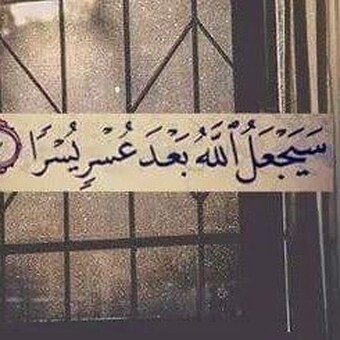 سَيَجْعَلُ ٱللَّهُ بَعْدَ عُسْرٍ يُسْرًا